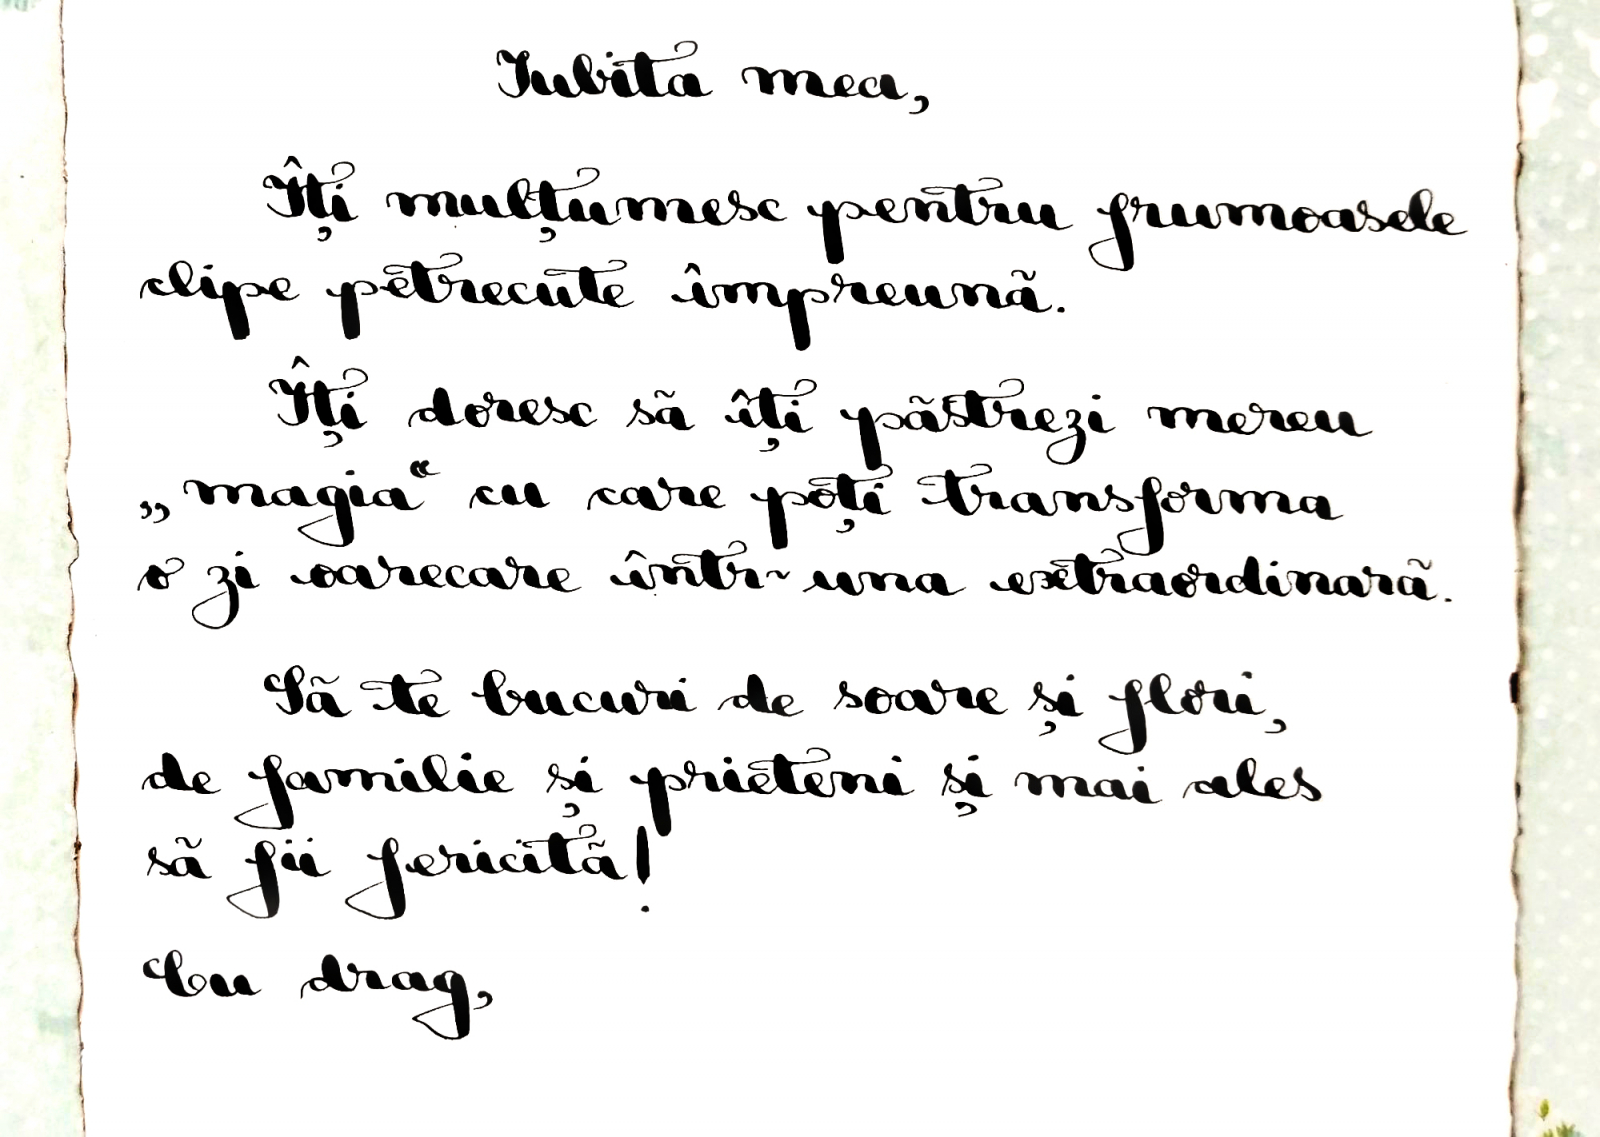 Iubita mea,
Îți mulțumesc pentru frumoasele
clipe petrecute împreună.
Îți doresc să îți păstrezi mereu
„magia“ cu care poți transforma
o zi oarecare într-una extraordinară.
Să te bucuri de soare și flori,
de familie și prieteni și mai ales
să fii fericită!
Cu drag,